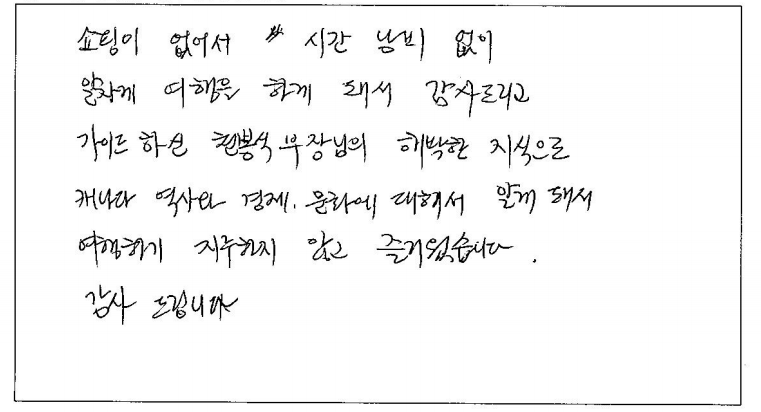 쇼핑이 없어서 시간 낭비 없이
알차게 여행을 하게 돼서 감사드리고
가이드 하신 현봉석 부장님의 해박한 지식으로
캐나다 역사와 경제. 문화에 대해서 알게 돼서
여행하기 지루하지 않고 즐거웠습니다.
감사 드립니다